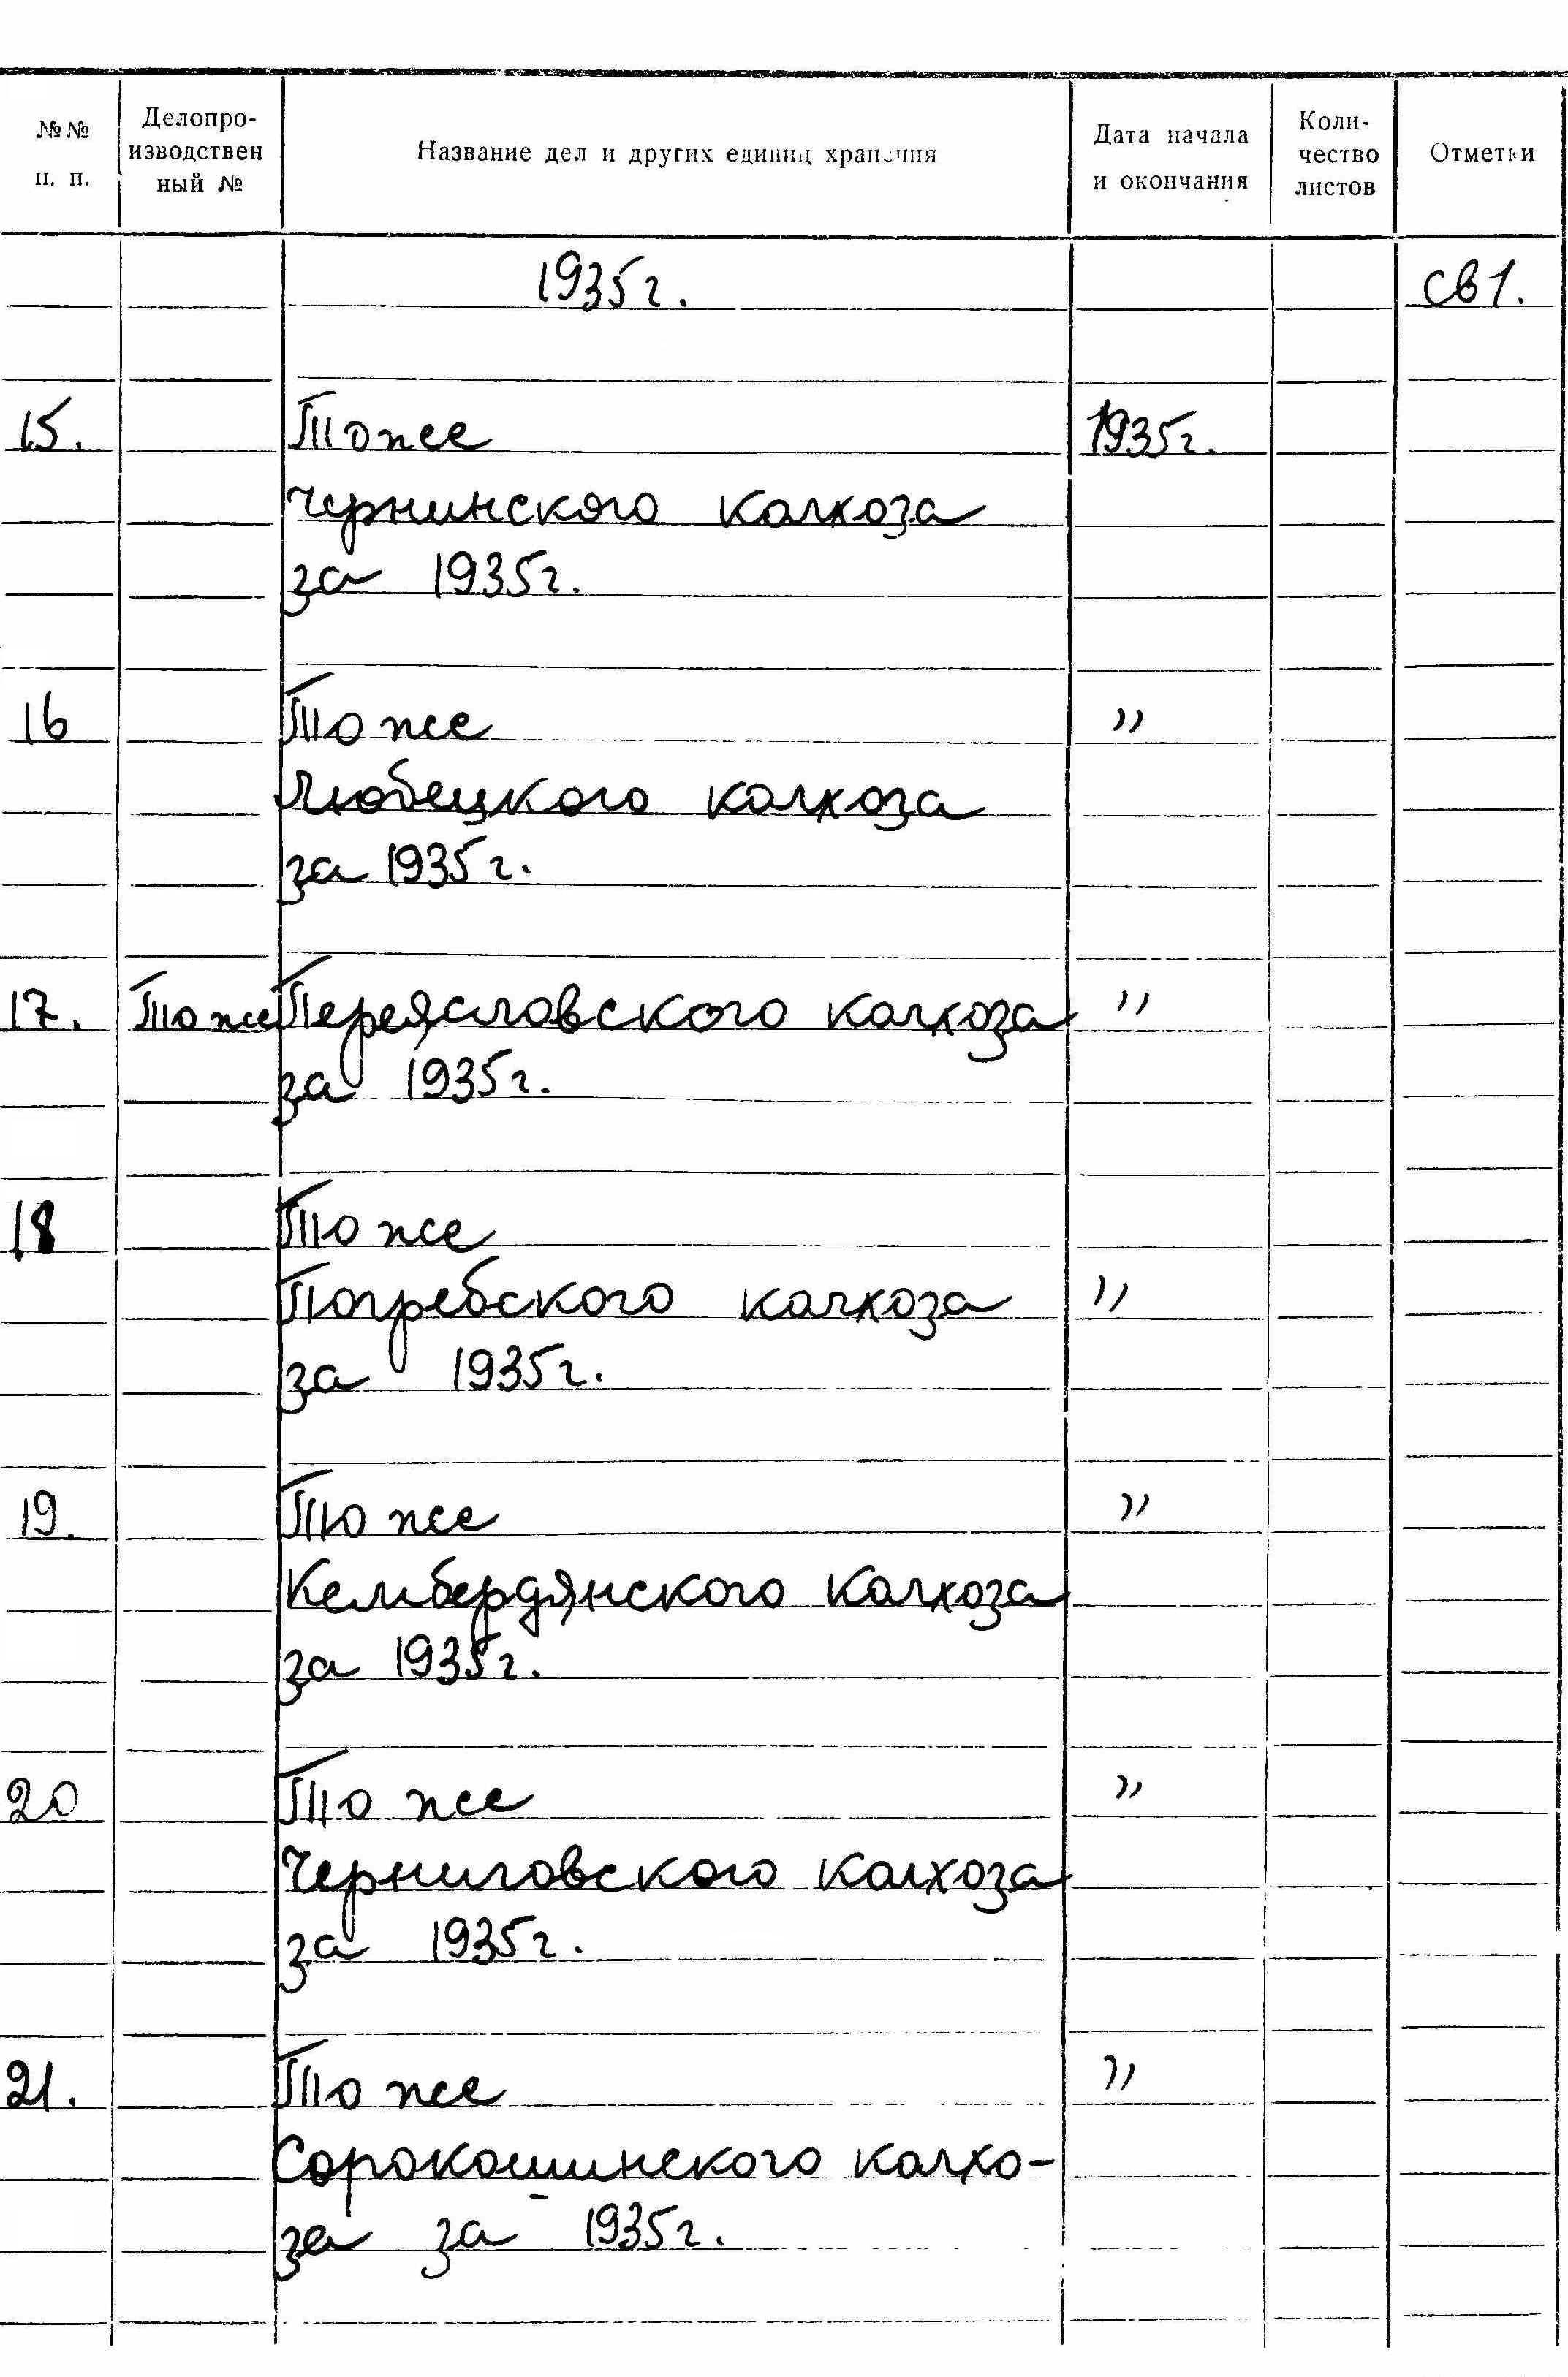 №№ п. п. Делопроизводствен ный № Название дел и других единиц хранения Дата начала и окончания Количество листов Отметки
1935г. св1.
15. То же 1935г.
Чернинского колхоза
за 1935г.
16 То же "
Любецкого колхоза
за 1935г.
17. То же Переясловского колхоза "
за 1935г.
18 То же
Погребского колхоза "
за 1935г.
19. То же "
Кембердянского колхоза
за 1935г.
20 То же "
Черниговского колхоза
за 1935г.
21. То же "
Сорокошинского колхо-
за за 1935г.